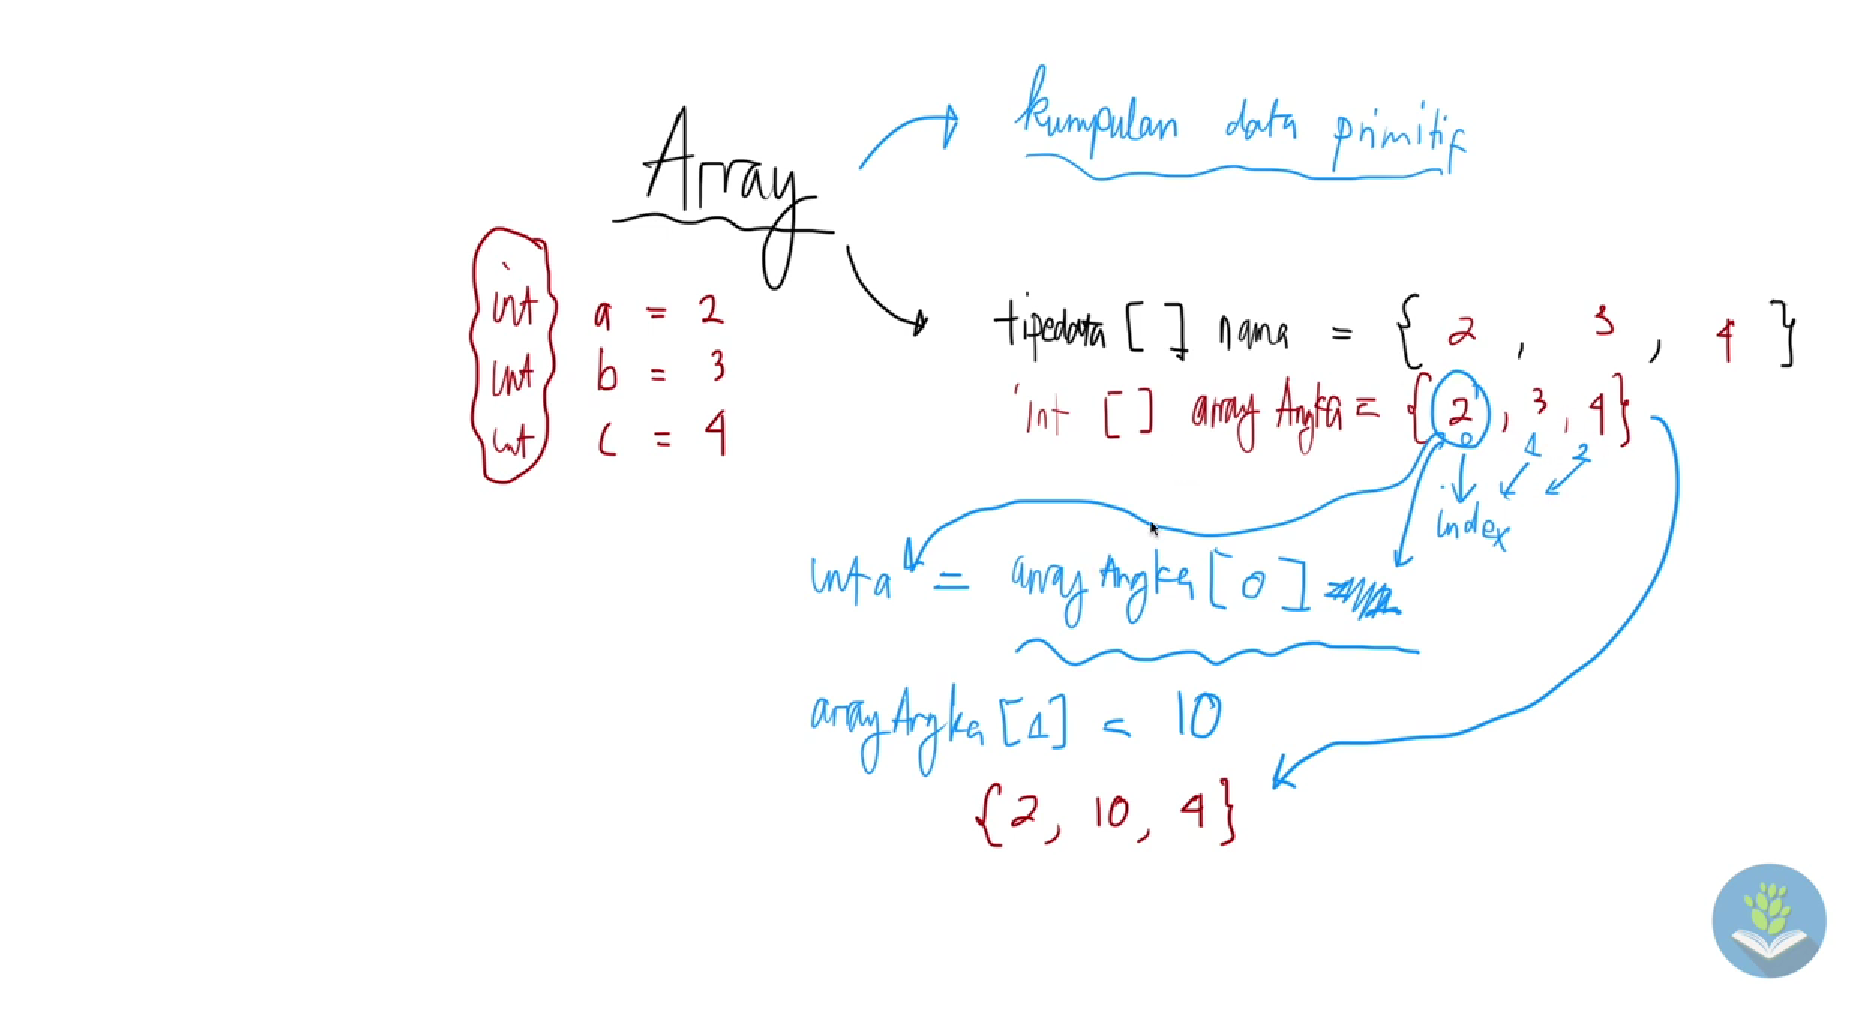 Array
kumpulan data primitif
int a = 2
int b = 3
int c = 4
tipedata [ ] nama = { 2 , 3 , 4 }
int [ ] arrayAngka = { 2 , 3 , 4 }
0 1 2
index
int a = arrayAngka [ 0 ]
arrayAngka [ 1 ] = 10
{ 2, 10, 4 }